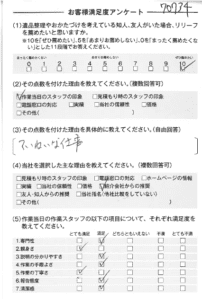 70774
お客様満足度アンケート
(1)遺品整理やおかたづけを考えている知人、友人がいた場合、リリーフ
を薦めたいと思いますか。
※10を「ぜひ薦めたい」、5を「あまりお薦めしない」、0を「まったく薦めたくな
い」として11段階でお答えください。
0 1 2 3 4 5 6 7 8 9 10
(2)その点数を付けた理由を教えてください。(複数回答可)
作業当日のスタッフの印象 見積もり時のスタッフの印象
電話窓口の対応 実績 当社の信頼性 価格
その他(
(3)その点数を付けた理由を具体的に教えてください。(自由回答)
ていねいな仕事
(4)当社を選択した主な理由を教えてください。(複数回答可)
見積もり時のスタッフの印象 電話窓口の対応 ホームページの情報
実績 当社の信頼性 価格 紹介会社からの推薦
友人・知人からの推薦 当社指名(他社比較をしていない)
その他(
(5)作業当日の作業スタッフの以下の項目について、それぞれ満足度を
教えてください。
とても満足 満足 どちらともいえない 不満 とても不満
1.専門性
2.親身さ
3.説明の分かりやすさ
4.作業の手際よさ
5.作業の丁寧さ
6.報告頻度
7.清潔感